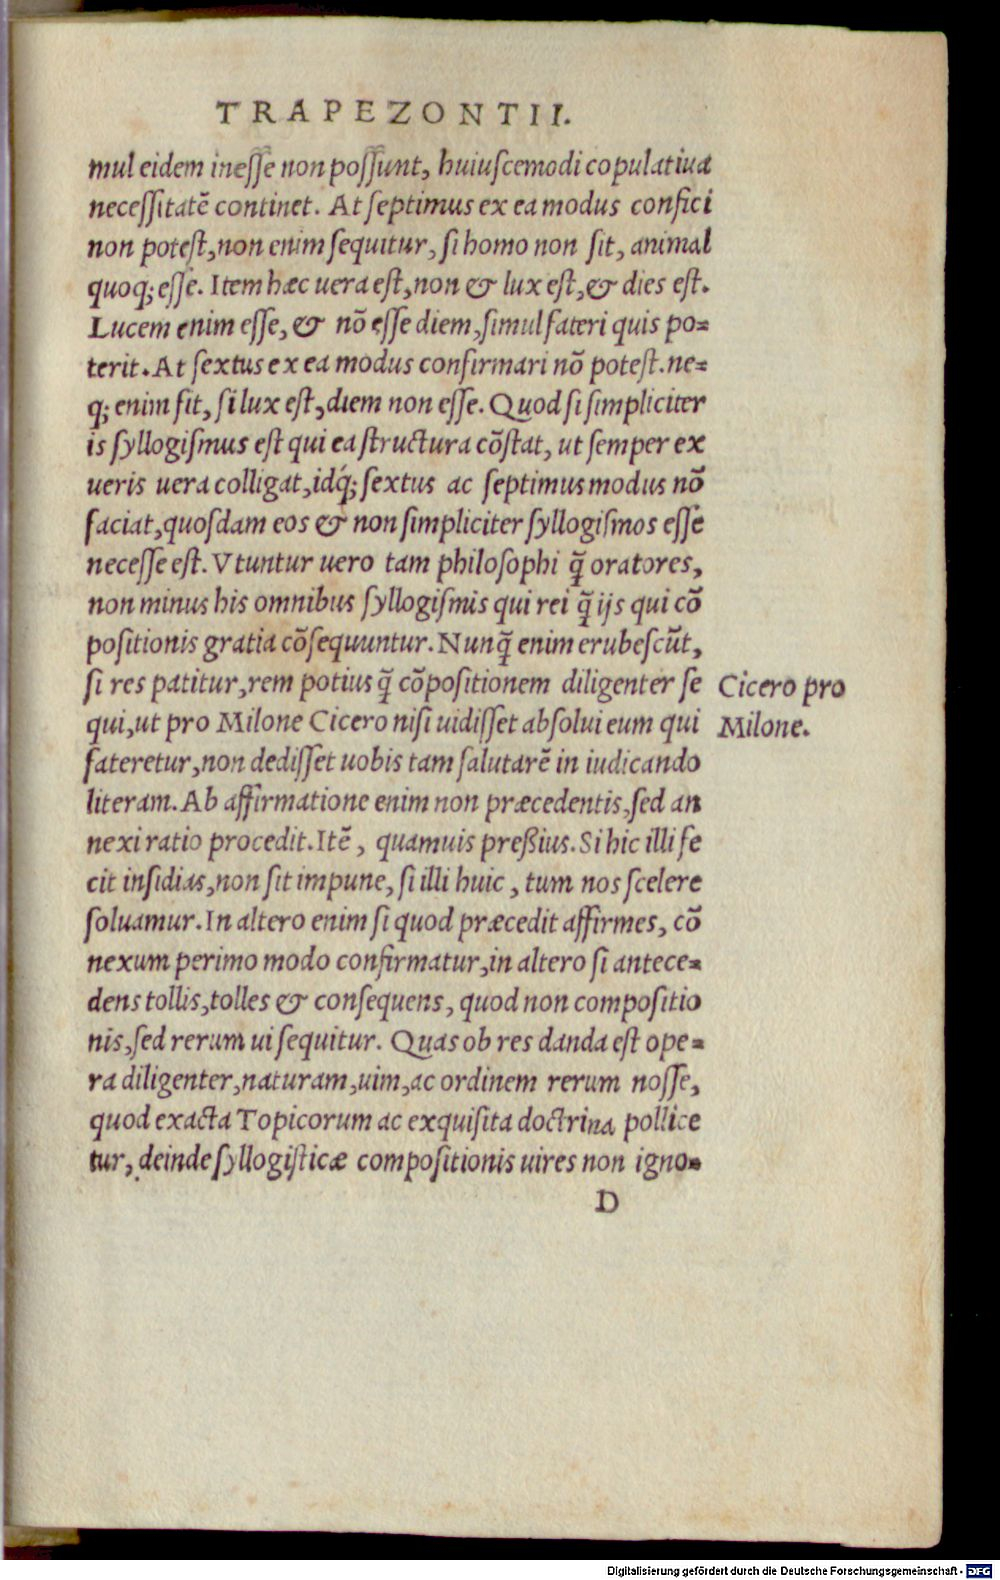 TRAPEZONTII.
mul eidem inesse non possunt, huiuscemodi copulatiua
necessitatē continet. At septimus ex ea modus confici
non potest, non enim sequitur, si homo non sit, animal
quoq; esse. Item hæc uera est, non & lux est, & dies est.
Lucem enim esse, & nō esse diem, simul fateri quis po=
terit. At sextus ex ea modus confirmari nō potest. ne=
q; enim fit, si lux est, diem non esse. Quod si simpliciter
is syllogismus est qui ea structura cōstat, ut semper ex
ueris uera colligat, idq́; sextus ac septimus modus nō
faciat, quosdam eos & non simpliciter syllogismos esse
necesse est. Vtuntur uero tam philosophi q̄ oratores,
non minus his omnibus syllogismis qui rei q̄ ijs qui cō
positionis gratia cōsequuntur. Nunq̄ enim erubescūt,
si res patitur, rem potius q̄ cōpositionem diligenter se
qui, ut pro Milone Cicero nisi uidisset absolui eum qui
fateretur, non dedisset uobis tam salutarē in iudicando
literam. Ab affirmatione enim non præcedentis, sed an
nexi ratio procedit. Itē, quamuis preßius. Si hic illi fe
cit insidias, non sit impune, si illi huic, tum nos scelere
soluamur. In altero enim si quod præcedit affirmes, cō
nexum perimo modo confirmatur, in altero si antece=
dens tollis, tolles & consequens, quod non compositio
nis, sed rerum ui sequitur. Quas ob res danda est ope=
ra diligenter, naturam, uim, ac ordinem rerum nosse,
quod exacta Topicorum ac exquisita doctrina pollice
tur, deinde syllogisticæ compositionis uires non igno=
D
Cicero pro
Milone.
Digitalisierung gefördert durch die Deutsche Forschungsgemeinschaft - DFG